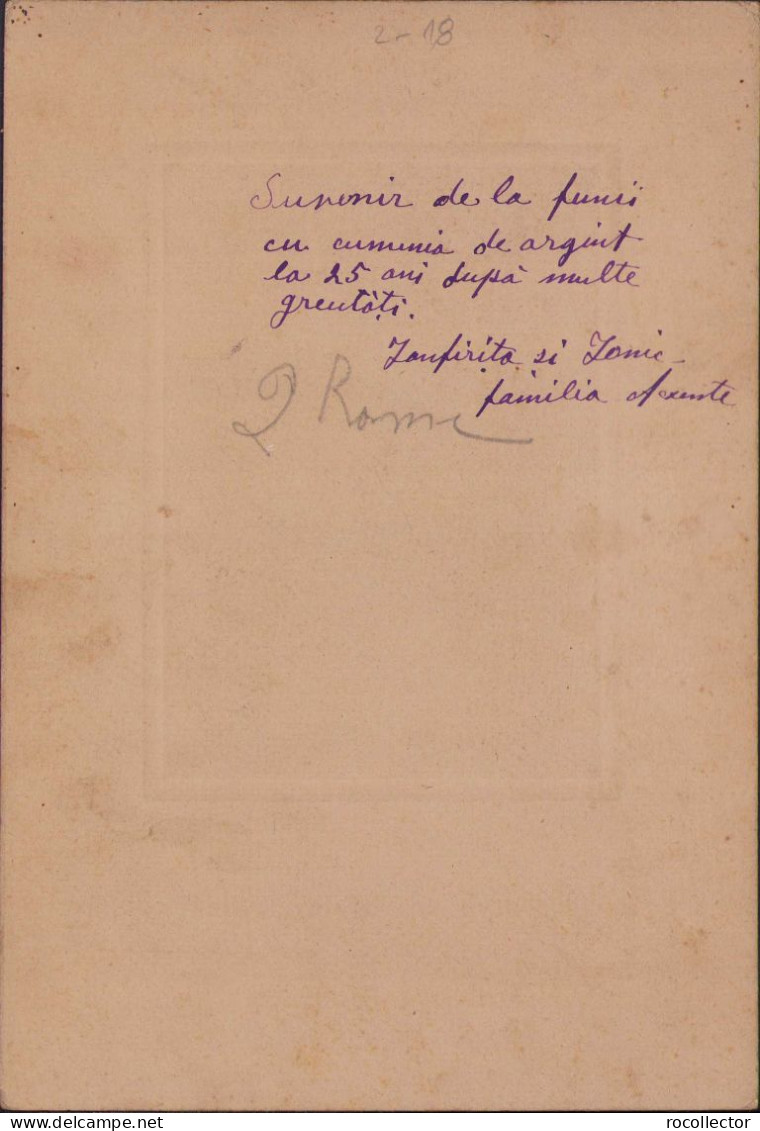 2-18
Suvenir de la funii
cu cumunia de argint
la 25 ani după multe
greutăți.
Zanfirita si Ionic
familia Axente
delcampe.net
rocollector